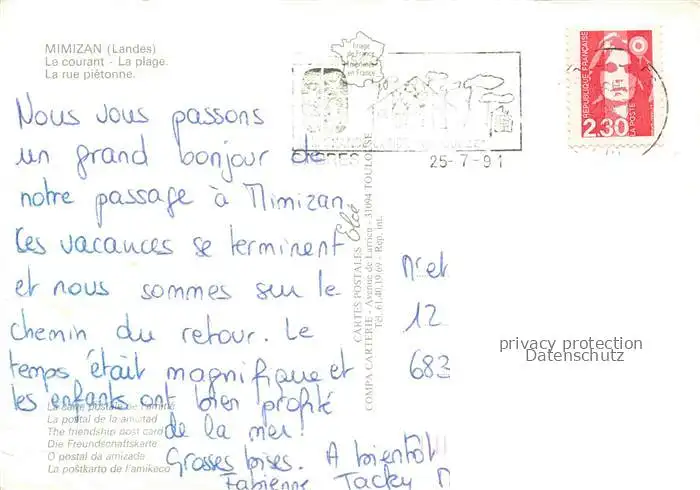 MIMIZAN (Landes)
Le courant - La plage.
La rue piétonne.
Nous vous passons
un grand bonjour de
notre passage à Mimizan.
Les vacances se terminent
et nous sommes sur le
chemin du retour. Le
temps était magnifique et
les enfants ont bien profité
de la mer!
Grosses bises. A bientôt
Fabienne Tacky
La postal de la amistad
The friendship post card
Die Freundschaftskarte
O postal da amizade
La postkarto de l'amikeco
CARTES POSTALES Elcé
COMPA CARTERIE - Avenue de Larrieu - 31094 TOULOUSE
Tél. 61.40.19.69 - Rep. int.
Image
de France
en France
25-7-91
REPUBLIQUE FRANÇAISE
LA POSTE
2,30
Mr et
12
683
privacy protection
Datenschutz